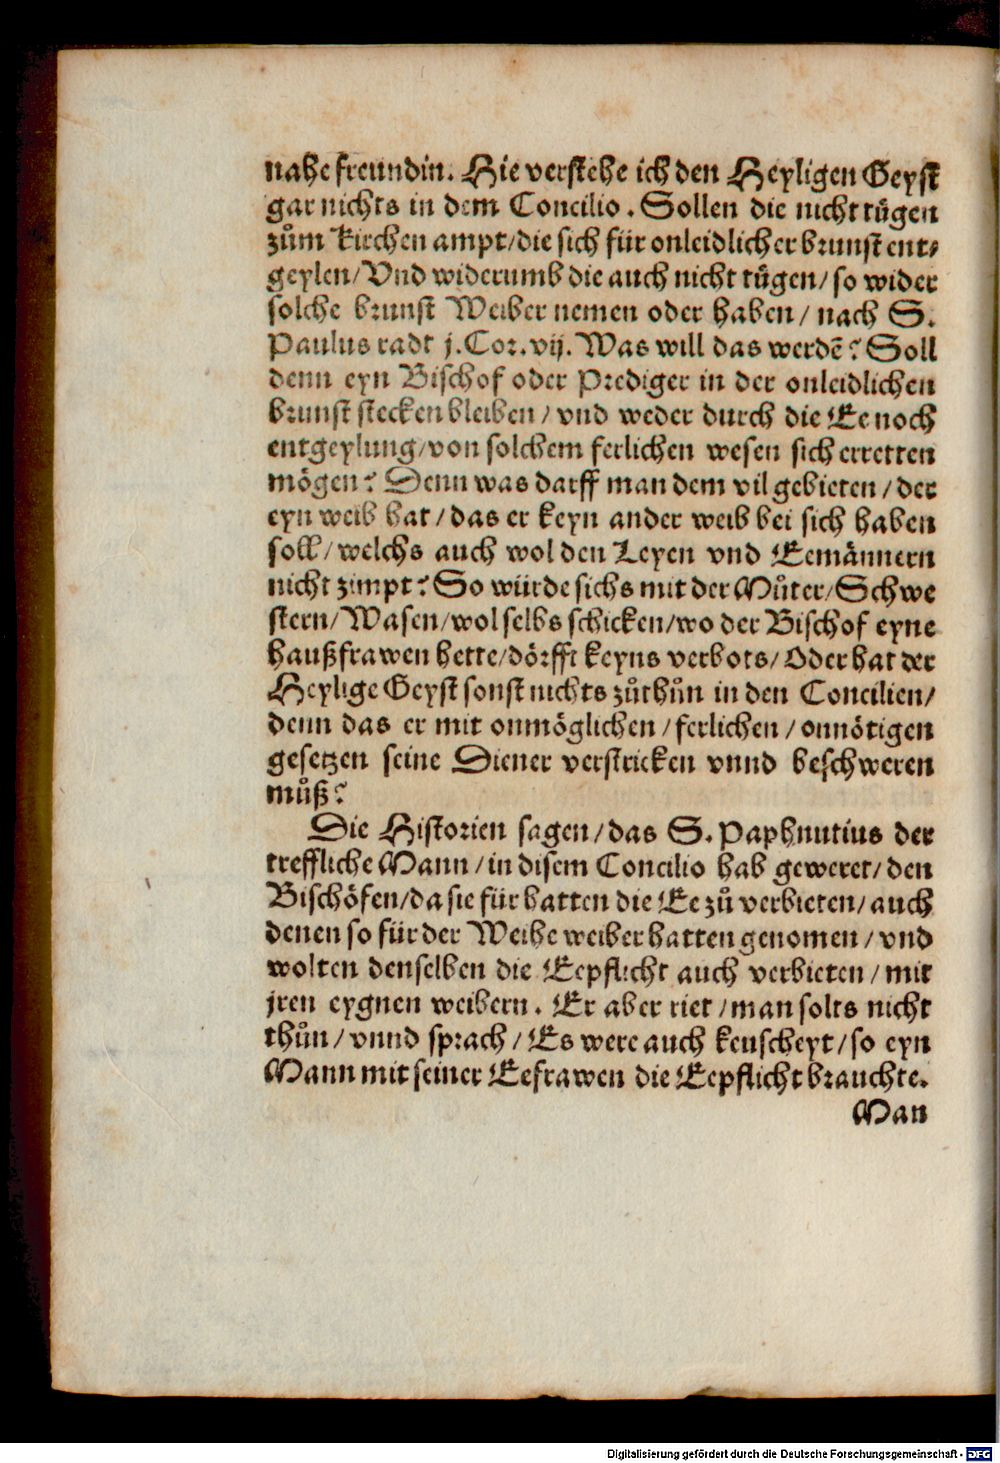 nahe freundin. Hie verstehe ich den Heyligen Geyst
gar nichts in dem Concilio. Sollen die nicht tügen
zům Kirchen ampt/die sich für onleidlicher brunst ent⸗
geylen/Vnd widerumb die auch nicht tügen/so wider
solche brunst Weiber nemen oder haben/nach S.
Paulus radt j.Cor.vij. Was will das werdē? Soll
denn eyn Bischof oder Prediger in der onleidlichen
brunst stecken bleiben/vnd weder durch die Ee noch
entgeylung/von solchem ferlichen wesen sich erretten
mögen? Denn was darff man dem vil gebieten/der
eyn weib hat/das er keyn ander weib bei sich haben
soll/welchs auch wol den Leyen vnd Eemännern
nicht zimpt? So würde sichs mit der Můter/Schwe
stern/Wasen/wol selbs schicken/wo der Bischof eyne
haußfrawen hette/dörfft keyns verbots/Oder hat der
Heylige Geyst sonst nichts zůthůn in den Concilien/
denn das er mit onmöglichen/ferlichen/onnötigen
gesetzen seine Diener verstricken vnnd beschweren
můß?
Die Historien sagen/das S. Paphnutius der
treffliche Mann/in disem Concilio hab geweret/den
Bischöfen/da sie für hatten die Ee zů verbieten/auch
denen so für der Weihe weiber hatten genomen/vnd
wolten denselben die Eepflicht auch verbieten/mit
jren eygnen weibern. Er aber riet/man solts nicht
thůn/vnnd sprach/Es were auch keuscheyt/so eyn
Mann mit seiner Eefrawen die Eepflicht brauchte.
Man
Digitalisierung gefördert durch die Deutsche Forschungsgemeinschaft - DFG